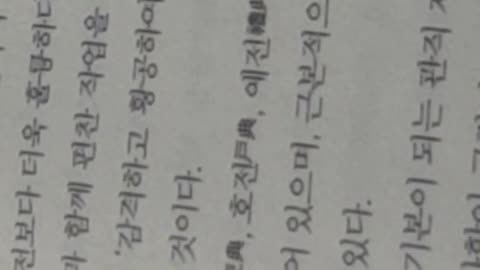 전보다 더욱 훌륭하다
함께 편찬 작업을
'감격하고 황공하여
것이다.
典, 호전戶典, 예전禮典
어 있으며, 근본적으
있다.
기본이 되는 관직